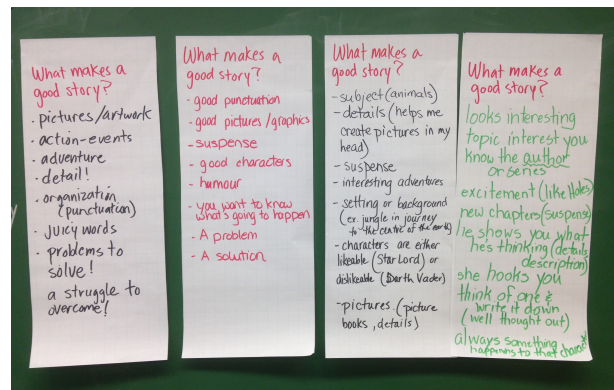 What makes a
good story?
· pictures/artwork
· action-events
· adventure
· detail!
· organization
(punctuation)
· juicy words
· problems to
solve!
a struggle to
overcome!
What makes a
good story?
- good punctuation
- good pictures/graphics
- suspense
- good characters
- humour
- you want to know
what's going to happen
- A problem
- A solution
What makes a
good story?
- subject (animals)
- details (helps me
create pictures in my
head)
- suspense
- interesting adventures
- setting or background
(ex. jungle in journey
to the centre of the earth)
- characters are either
likeable (Star Lord) or
dislikeable (Darth Vader)
- pictures (picture
books, details)
What makes a
good story?
looks interesting
topic interest you
know the author
or series
excitement (like Holes)
new chapters (suspense)
he shows you what
he's thinking (details
description)
she hooks you
think of one &
write it down
(well thought out)
always something
happens to that character